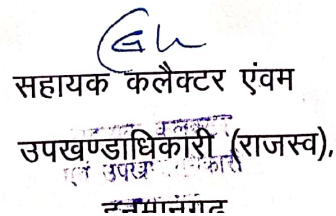 सहायक कलैक्टर एंवम
उपखण्डाधिकारी (राजस्व),
हनुमानगढ़